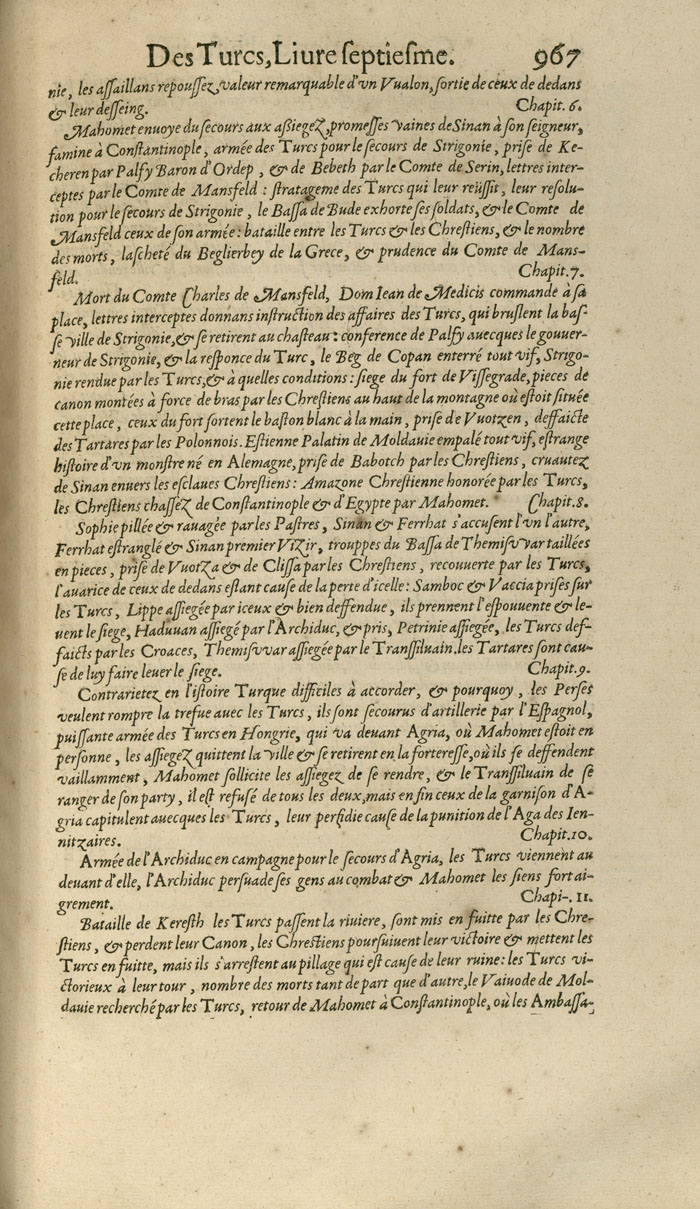 Des Turcs, Liure ſeptieſme. 967
nie, les aſſaillans repouſſez, valeur remarquable d'vn Vualon, ſortie de ceux de dedans
& leur deſſeing. Chapit. 6.
Mahomet enuoye du ſecours aux aßiegez, promeſſes vaines de Sinan à ſon ſeigneur,
famine à Conſtantinople, armée des Turcs pour le ſecours de Strigonie, priſe de Ke-
cheren par Palfy Baron d'Ordep, & de Bebeth par le Comte de Serin, lettres inter-
ceptes par le Comte de Mansfeld : ſtratageme des Turcs qui leur reüſſit, leur reſolu-
tion pour le ſecours de Strigonie, le Baſſa de Bude exhorte ſes ſoldats, & le Comte de
Mansfeld ceux de ſon armée : bataille entre les Turcs & les Chreſtiens, & le nombre
des morts, laſcheté du Beglierbey de la Grece, & prudence du Comte de Mans-
feld. Chapit. 7.
Mort du Comte Charles de Mansfeld, Dom Iean de Medicis commande à ſa
place, lettres interceptes donnans inſtruction des affaires des Turcs, qui bruſlent la baſ-
ſe ville de Strigonie, & ſe retirent au chaſteau : conference de Palfy auecques le gouuer-
neur de Strigonie, & la reſponce du Turc, le Beg de Copan enterré tout vif, Strigo-
nie rendue par les Turcs, & à quelles conditions : ſiege du fort de Viſſegrade, pieces de
canon montées à force de bras par les Chreſtiens au haut de la montagne où eſtoit ſituée
cette place, ceux du fort ſortent le baſton blanc à la main, priſe de Vuotzen, deffaicte
des Tartares par les Polonnois. Eſtienne Palatin de Moldauie empalé tout vif, eſtrange
hiſtoire d'vn monſtre né en Alemagne, priſe de Babotch par les Chreſtiens, cruautez
de Sinan enuers les eſclaues Chreſtiens : Amazone Chreſtienne honorée par les Turcs,
les Chreſtiens chaſſez de Conſtantinople & d'Egypte par Mahomet. Chapit. 8.
Sophie pillée & rauagée par les Paſtres, Sinan & Ferrhat s'accuſent l'vn l'autre,
Ferrhat eſtranglé & Sinan premier Vizir, trouppes du Baſſa de Themiſvvar taillées
en pieces, priſe de Vuotza & de Cliſſa par les Chreſtiens, recouuerte par les Turcs,
l'auarice de ceux de dedans eſtant cauſe de la perte d'icelle : Samboc & Vaccia priſes ſur
les Turcs, Lippe aſſiegée par iceux & bien deffendue, ils prennent l'eſpouuente & le-
uent le ſiege, Haduuan aſſiegé par l'Archiduc, & pris, Petrinie aſſiegée, les Turcs def-
faicts par les Croaces, Themiſvvar aſſiegée par le Tranſſiluain. les Tartares ſont cau-
ſe de luy faire leuer le ſiege. Chapit. 9.
Contrarietez en l'iſtoire Turque difficiles à accorder, & pourquoy, les Perſes
veulent rompre la trefue auec les Turcs, ils ſont ſecourus d'artillerie par l'Eſpagnol,
puiſſante armée des Turcs en Hongrie, qui va deuant Agria, où Mahomet eſtoit en
perſonne, les aſſiegez quittent la ville & ſe retirent en la fortereſſe, où ils ſe deffendent
vaillamment, Mahomet ſollicite les aſſiegez de ſe rendre, & le Tranſſiluain de ſe
ranger de ſon party, il eſt refuſé de tous les deux, mais en fin ceux de la garniſon d'A-
gria capitulent auecques les Turcs, leur perfidie cauſe de la punition de l'Aga des Ien-
nitzaires. Chapit. 10.
Armée de l'Archiduc en campagne pour le ſecours d'Agria, les Turcs viennent au
deuant d'elle, l'Archiduc perſuade ſes gens au combat & Mahomet les ſiens fort ai-
grement. Chapi-. 11.
Bataille de Keresth les Turcs paſſent la riuiere, ſont mis en fuitte par les Chre-
ſtiens, & perdent leur Canon, les Chreſtiens pourſuiuent leur victoire & mettent les
Turcs en fuitte, mais ils s'arreſtent au pillage qui eſt cauſe de leur ruine : les Turcs vi-
ctorieux à leur tour, nombre des morts tant de part que d'autre, le Vaiuode de Mol-
dauie recherché par les Turcs, retour de Mahomet à Conſtantinople, où les Ambaſſa-